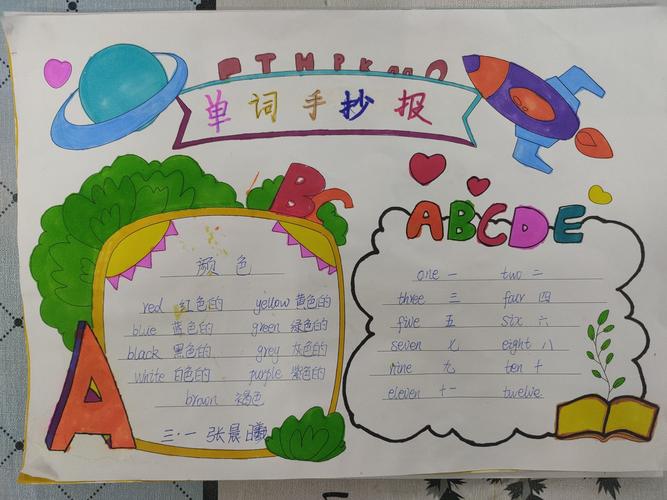 单词手抄报
BC
ABCDE
颜色
red 红色的 yellow 黄色的
blue 蓝色的 green 绿色的
black 黑色的 grey 灰色的
white 白色的 purple 紫色的
brown 褐色
三·一 张晨曦
A
one 一 two 二
three 三 four 四
five 五 six 六
seven 七 eight 八
nine 九 ten 十
eleven 十一 twelve